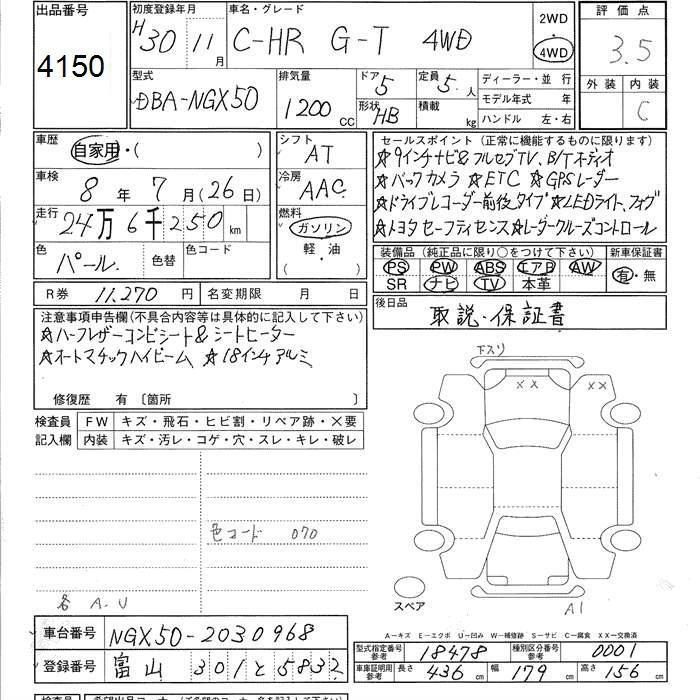 出品番号 初度登録年月 車名・グレード 2WD 評価点
4150 H30 11月 C-HR G-T 4WD 4WD 3.5
型式 排気量 ドア 5 定員 5人 ディーラー・並行 外装 内装
DBA-NGX50 1200cc 形状 HB 積載 kg モデル年式 年 C
ハンドル 左・右
車歴 自家用・( ) シフト AT セールスポイント (正常に機能するものに限ります)
☆9インチナビ&フルセグTV、B/Tオーディオ
車検 8年7月(26日) 冷房 AAC ☆バックカメラ ☆ETC ☆GPSレーダー
走行 24万6千250km 燃料 ガソリン ☆ドライブレコーダー前後タイプ ☆LEDライト、フォグ
軽・油 ☆トヨタセーフティセンス☆レーダークルーズコントロール
( )
色 パール. 色替 色コード 装備品 (純正品に限り○をつけて下さい) 新車保証書
PS PW ABS エアB AW 有・無
SR ナビ TV 本革
R券 11,270円 名変期限 月 日 後日品 取説・保証書
注意事項申告欄(不具合内容等は具体的に記入して下さい)
☆ハーフレザーコンビシート&シートヒーター
☆オートマチックハイビーム ☆18インチアルミ
修復歴 有 〔箇所 〕
検査員 FW キズ・飛石・ヒビ割・リペア跡・×要
記入欄 内装 キズ・汚レ・コゲ・穴・スレ・キレ・破レ
下スリ
×× ××
色コード 070
各 A.U
スペア
A1
A−キズ E−エクボ U−凹み W−補修跡 S−サビ C−腐食 XX−交換済
車台番号 NGX50-2030968
型式指定番号参考 18478 種別区分番号参考 0001
登録番号 富山 301と5832
車庫証明用参考 長さ 436cm 幅 179cm 高さ 156cm